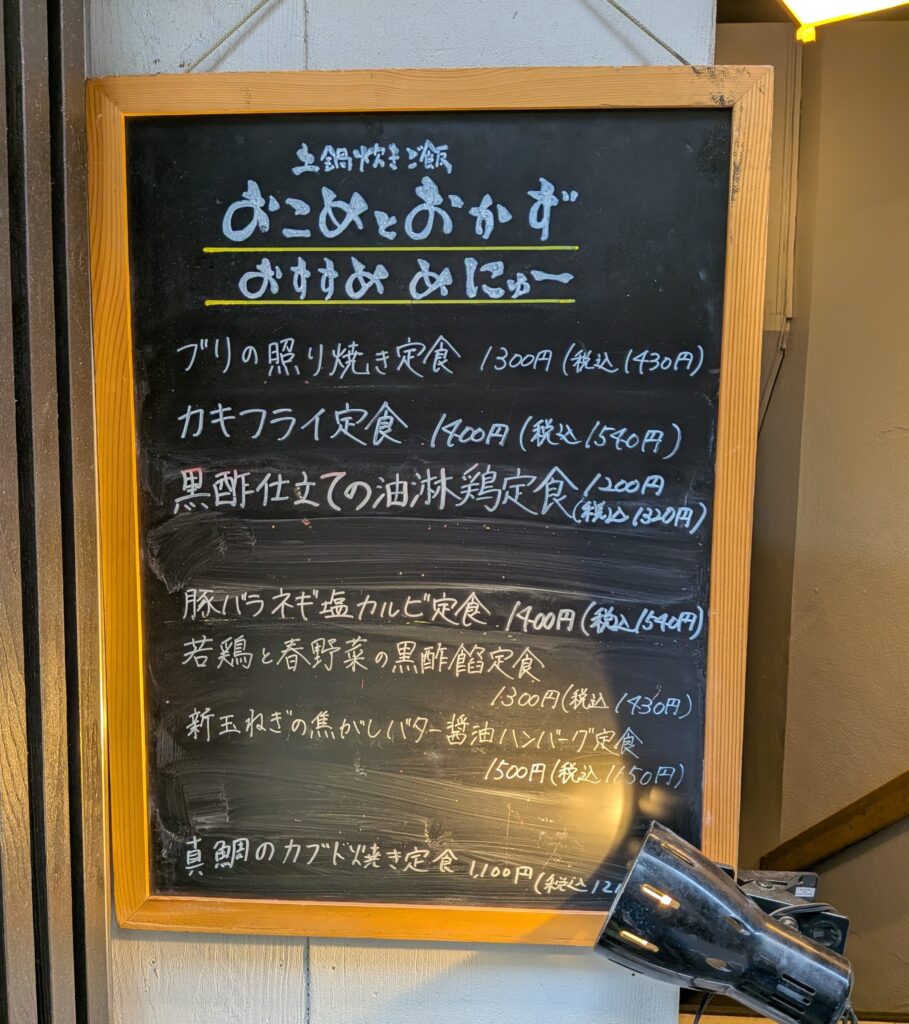 土鍋炊きご飯
おこめとおかず
おすすめ めにゅー
ブリの照り焼き定食 1300円(税込1430円)
カキフライ定食 1400円(税込1540円)
黒酢仕立ての油淋鶏定食 1200円
(税込1320円)
豚バラネギ塩カルビ定食 1400円(税込1540円)
若鶏と春野菜の黒酢餡定食
1300円(税込1430円)
新玉ねぎの焦がしバター醤油ハンバーグ定食
1500円(税込1650円)
真鯛のカブト焼き定食 1,100円(税込121